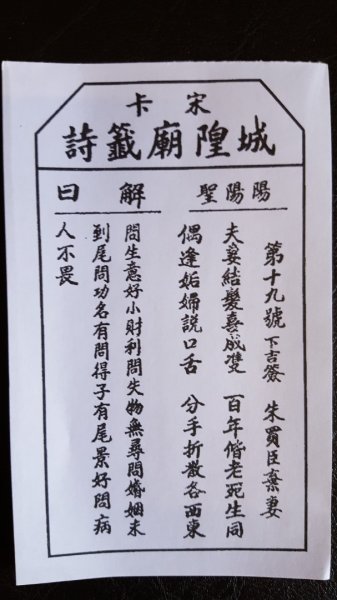 宋卡
城隍廟籤詩
陽陽聖
第十九號 下吉簽 朱買臣棄妻
夫妻結髮喜成雙 百年偕老死生同
偶逢妬婦說口舌 分手折散各西東
解曰
問生意好小財利問失物無尋問婚姻未
到尾問功名有問得子有尾景好問病
人不畏